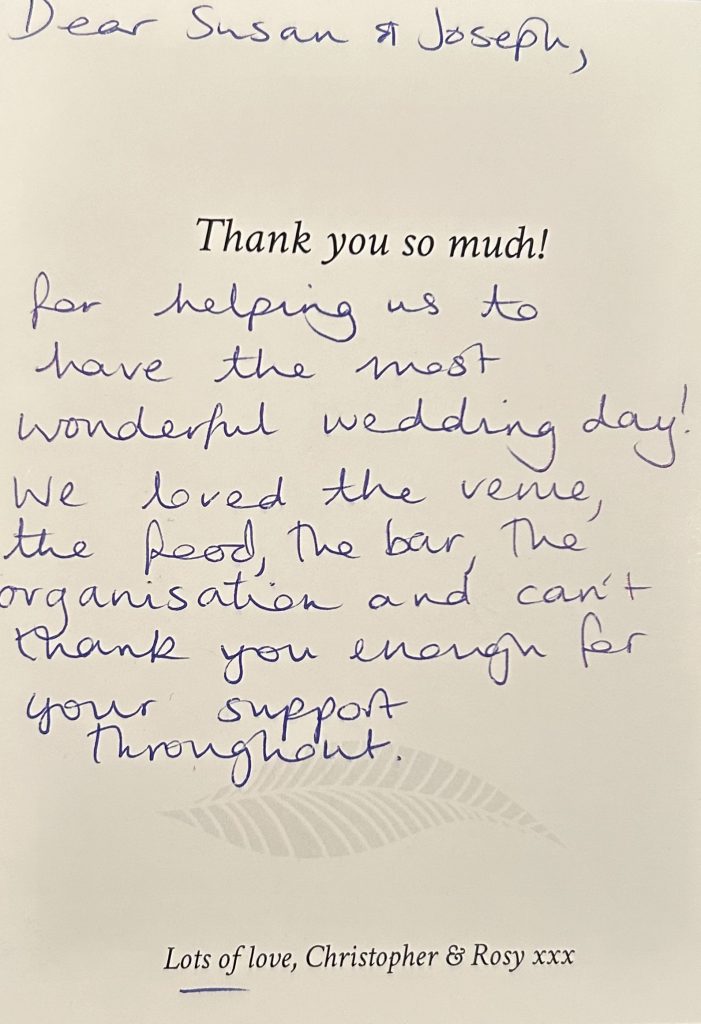 Dear Susan & Joseph,
Thank you so much!
for helping us to
have the most
wonderful wedding day!
We loved the venue,
the food, the bar, the
organisation and can't
thank you enough for
your support
throughout.
Lots of love, Christopher & Rosy xxx